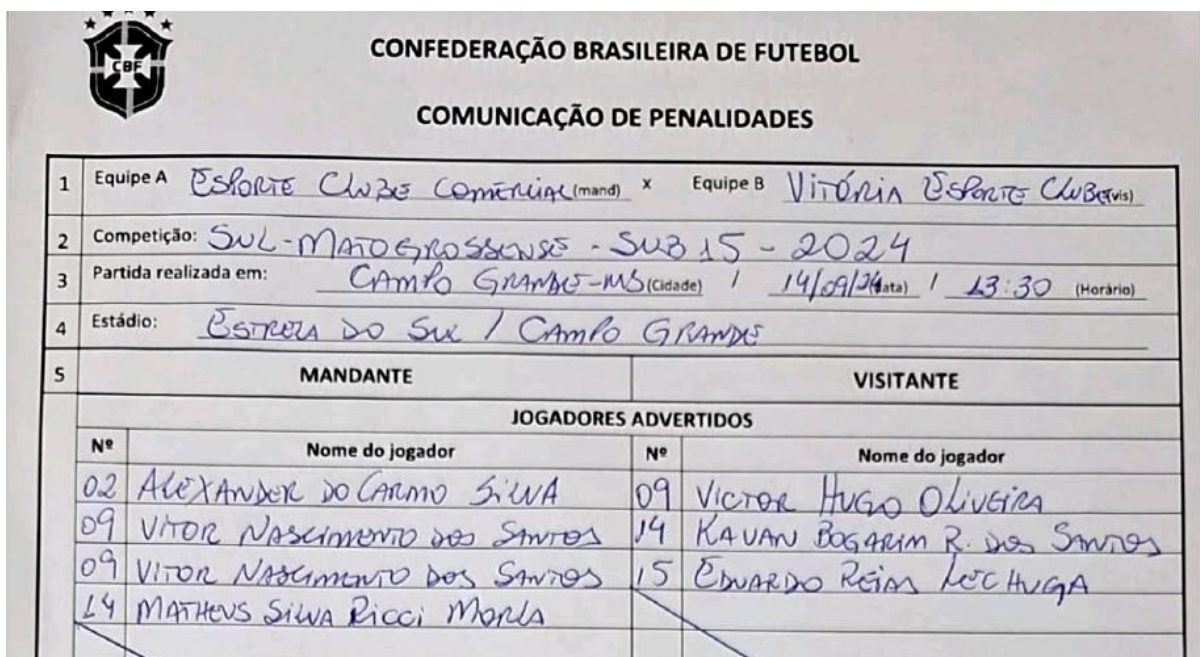 CBF
CONFEDERAÇÃO BRASILEIRA DE FUTEBOL
COMUNICAÇÃO DE PENALIDADES
1 Equipe A ESPORTE CLUBE COMERCIAL (mand) x Equipe B VITÓRIA ESPORTE CLUBE (vis)
2 Competição: SUL-MATOGROSSENSE - SUB 15 - 2024
3 Partida realizada em: CAMPO GRANDE-MS (Cidade) / 14/09/24 (data) / 13:30 (Horário)
4 Estádio: ESTRELA DO SUL / CAMPO GRANDE
5 MANDANTE VISITANTE
JOGADORES ADVERTIDOS
Nº Nome do jogador Nº Nome do jogador
02 ALEXANDER DO CARMO SILVA 09 VICTOR HUGO OLIVEIRA
09 VITOR NASCIMENTO DOS SANTOS 14 KAUAN BOGARIM R. DOS SANTOS
09 VITOR NASCIMENTO DOS SANTOS 15 EDUARDO LECHUGA
14 MATHEUS SILVA RICCI